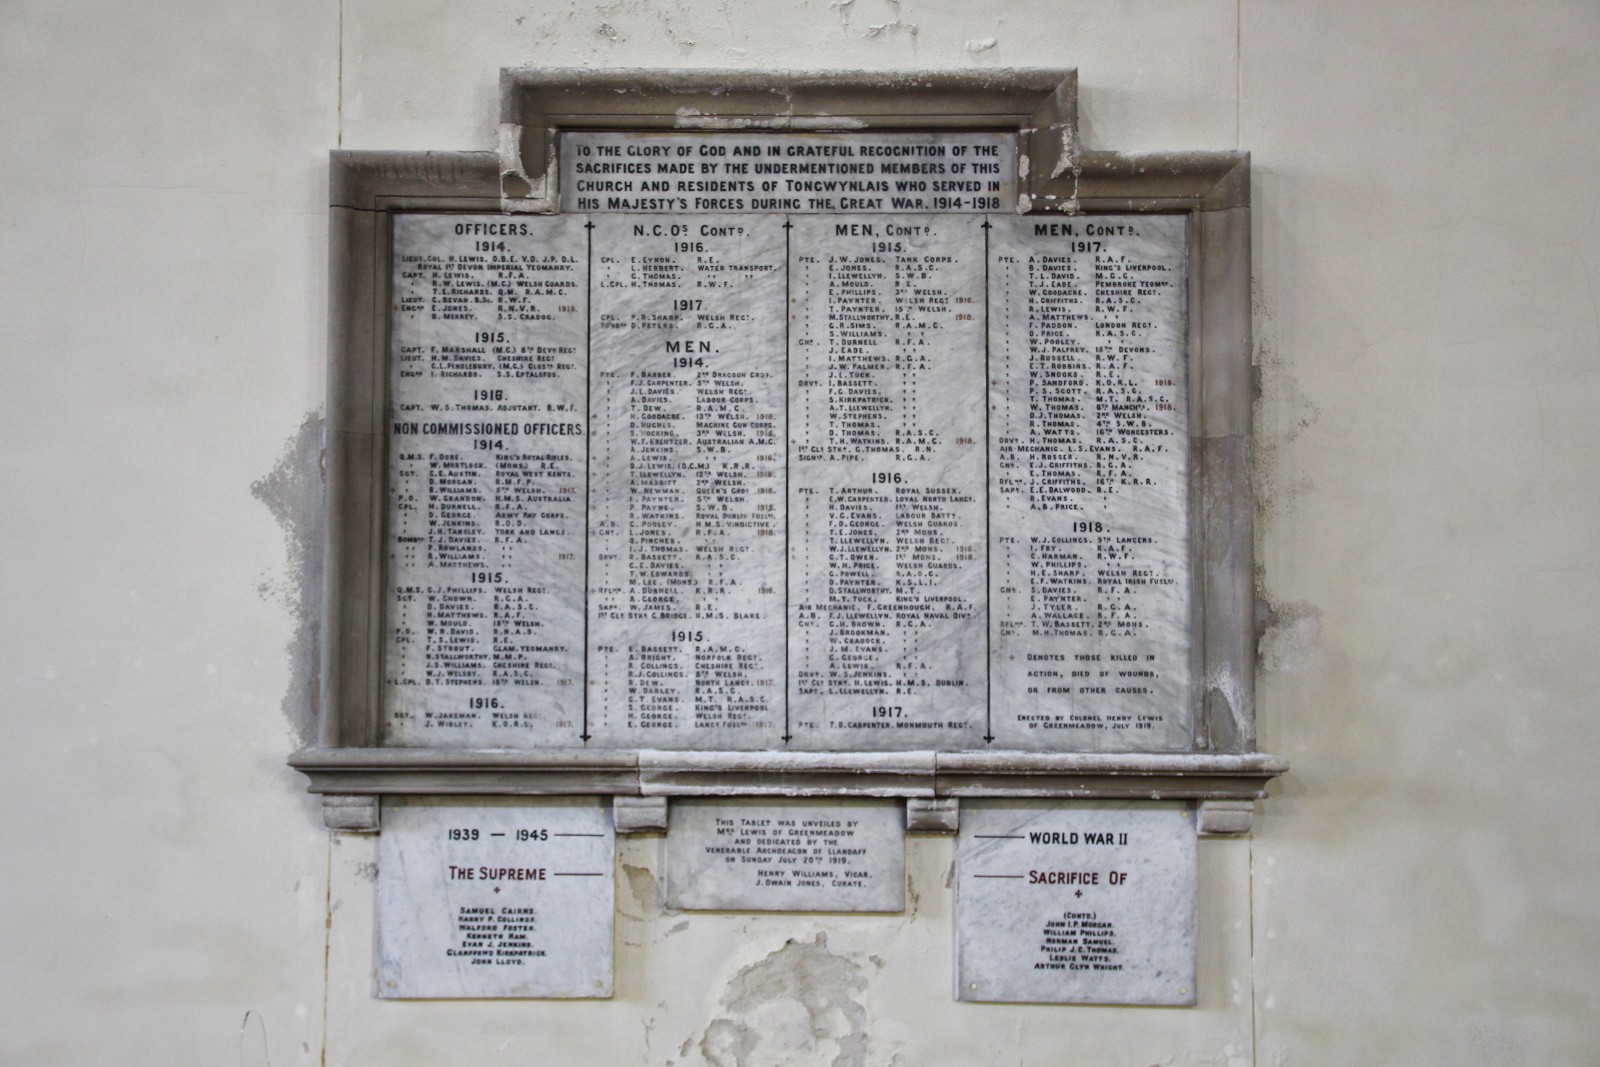 TO THE GLORY OF GOD AND IN GRATEFUL RECOGNITION OF THE
SACRIFICES MADE BY THE UNDERMENTIONED MEMBERS OF THIS
CHURCH AND RESIDENTS OF TONGWYNLAIS WHO SERVED IN
HIS MAJESTY'S FORCES DURING THE GREAT WAR. 1914-1918
OFFICERS.
1914.
LIEUT. COL. H. LEWIS. O.B.E. V.D. J.P. D.L.
ROYAL 1ST DEVON IMPERIAL YEOMANRY.
CAPT. H. LEWIS. R.F.A.
" R.W. LEWIS. (M.C.) WELSH GUARDS.
" T.E. RICHARDS. Q.M. R.A.M.C.
LIEUT. C. BEVAN. B.SC. R.W.F.
+ ENGR E. JONES. R.N.V.R. 1918.
" B. MERREY. S.S. CRADOC.
1915.
CAPT. F. MARSHALL (M.C.) 6TH DEVN REGT
LIEUT. H.M. DAVIES. CHESHIRE REGT
" C.L. PENDLEBURY. (M.C.) GLOSTR REGT.
ENGR I. RICHARDS. S.S. EPTALOFOS.
1916.
CAPT. W.S. THOMAS. ADJUTANT. R.W.F.
NON COMMISSIONED OFFICERS.
1914.
Q.M.S. F. DORE. KING'S ROYAL RIFLES.
" W. MORTLOCK. (MONS.) R.E.
SGT. C.E. AUSTIN. ROYAL WEST KENTS.
" D. MORGAN. R.M.F.P.
+ " B. WILLIAMS. 5TH WELSH. 1917.
P.O. W. GRANDON. H.M.S. AUSTRALIA.
CPL. H. DURNELL. R.F.A.
" D. GEORGE. ARMY PAY CORPS.
" W. JENKINS. R.O.D.
" J.H. TANSLEY. YORK AND LANCS.
BOMBR T.J. DAVIES. R.F.A.
" P. ROWLANDS. "
+ " R. WILLIAMS. " 1917.
" A. MATTHEWS. "
1915.
Q.M.S. C.J. PHILLIPS. WELSH REGT.
SGT. W. CHOWN. R.G.A.
" D. DAVIES. R.A.S.C.
" N. MATTHEWS. R.A.F.
" W. MOULD. 18TH WELSH.
P.O. W.R. DAVID. R.N.A.S.
CPL. T.S. LEWIS. R.E.
" F. STROUT. GLAM. YEOMANRY.
" N. STALLWORTHY. M.M.P.
" J.S. WILLIAMS. CHESHIRE REGT.
" W.J. WELSBY. R.A.S.C.
+ L.CPL. D.T. STEPHENS. 16TH WELSH. 1917.
1916.
SGT. W. JAKEMAN. WELSH REGT.
+ " J. WIGLEY. K.O.R.L. 1917.
N.C.OS CONTD.
1916.
CPL. E. EYNON. R.E.
" L. HERBERT. WATER TRANSPORT.
" G. THOMAS. " "
L.CPL. H. THOMAS. R.W.F.
1917
CPL. P.R. SHARP. WELSH REGT.
BOMBR D. PETERS. R.G.A.
MEN.
1914.
PTE. F. BARBER. 2ND DRAGOON GRDS.
" F.J. CARPENTER. 5TH WELSH.
" J.L. DAVIES. WELSH REGT.
" A. DAVIES. LABOUR CORPS.
" T. DEW. R.A.M.C.
+ " H. GOODACRE. 13TH WELSH. 1918.
" D. HUGHES. MACHINE GUN CORPS.
+ " S. HOCKING. 3RD WELSH. 1915.
" W.F. KREUTZER. AUSTRALIAN A.M.C.
" A. JENKINS. S.W.B.
+ " A. LEWIS. " 1916.
" D.J. LEWIS. (D.C.M.) K.R.R.
+ " T. LLEWELLYN. 12TH WELSH. 1918.
" A. MABBITT. 2ND WELSH.
+ " W. NEWMAN. QUEEN'S GRDS 1915.
" I. PAYNTER. 5TH WELSH
+ " P. PAYNE. S.W.B. 1915.
" R. WATKINS. ROYAL DUBLIN FUSLRS.
A.B. C. POOLEY. H.M.S. VINDICTIVE.
+ GNR. L. JONES. R.F.A. 1918.
" O. PINCHES. "
" I.J. THOMAS. WELSH REGT.
DRVR. R. BASSETT. R.A.S.C.
" C.E. DAVIES. "
" T.W. EDWARDS. "
" M. LEE. (MONS.) R.F.A.
+ RFLMN. A. DURNELL. K.R.R. 1916.
" A. GEORGE. "
SAPR. W. JAMES. R.E.
1ST CLS STKR C. BRIDGE. H.M.S. BLAKE.
1915.
PTE. E. BASSETT. R.A.M.C.
" A. BRIGHT. NORFOLK REGT.
" R. COLLINGS. CHESHIRE REGT.
" R.J. COLLINGS. 8TH WELSH.
+ " R. DEW. NORTH LANCS. 1917.
" W. DARLEY. R.A.S.C.
" C.T. EVANS. M.T. R.A.S.C.
" S. GEORGE. KING'S LIVERPOOL
" H. GEORGE. WELSH REGT.
+ " E. GEORGE. LANCS FUSLRS 1917.
MEN, CONTD.
1915.
PTE. J.W. JONES. TANK CORPS.
" E. JONES. R.A.S.C.
" I. LLEWELLYN. S.W.B.
" A. MOULD. R.E.
" E. PHILLIPS. 3RD WELSH.
+ " I. PAYNTER. WELSH REGT 1916.
" T. PAYNTER. 15TH WELSH.
+ " M. STALLWORTHY. R.E. 1918.
" G.R. SIMS. R.A.M.C.
" S. WILLIAMS. "
GNR. T. DURNELL. R.F.A.
" J. EADE. "
" I. MATTHEWS. R.G.A.
" J.W. PALMER. R.F.A.
" J.L. TUCK. "
DRVR. I. BASSETT. "
" F.G. DAVIES. "
" S. KIRKPATRICK. "
" A.T. LLEWELLYN. "
" W. STEPHENS. "
" T. THOMAS. "
" D. THOMAS. R.A.S.C.
+ " T.H. WATKINS. R.A.M.C. 1918.
1ST CLS STKR. G. THOMAS. R.N.
SIGNR. A. PIPE. R.G.A.
1916.
PTE. T. ARTHUR. ROYAL SUSSEX.
" E.W. CARPENTER. LOYAL NORTH LANCS.
" H. DAVIES. 1ST WELSH.
" V.G. EVANS. LABOUR BATTN.
" F.D. GEORGE. WELSH GUARDS.
" T.E. JONES. 2ND MONS.
" T. LLEWELLYN. WELSH REGT.
+ " W.J. LLEWELLYN. 2ND MONS. 1916.
+ " G.T. OWEN. 1ST MONS. 1918.
" W.H. PRICE. WELSH GUARDS.
" G. POWELL. R.A.O.C.
" D. PAYNTER. K.S.L.I.
" D. STALLWORTHY. M.T.
" M.T. TUCK. KING'S LIVERPOOL.
AIR MECHANIC. F. GREENHOUGH. R.A.F.
A.B. F.J. LLEWELLYN. ROYAL NAVAL DIVN.
GNR. G.H. BROWN. R.G.A.
" J. BROOKMAN. "
" W. CRADOCK. "
" J.M. EVANS. "
" C. GEORGE. "
" A. LEWIS. R.F.A.
DRVR. W.S. JENKINS. "
1ST CLS STKR. H. LEWIS. H.M.S. DUBLIN.
SAPR. L. LLEWELLYN. R.E.
1917.
PTE. T.D. CARPENTER. MONMOUTH REGT.
MEN, CONTD.
1917.
PTE. A. DAVIES. R.A.F.
" B. DAVIES. KING'S LIVERPOOL.
" T.L. DAVID. M.G.C.
" T.J. EADE. PEMBROKE YEOMRY.
" W. GOODACRE. CHESHIRE REGT.
" H. GRIFFITHS. R.A.S.C.
" R. LEWIS. R.W.F.
" A. MATTHEWS. "
" F. PADDON. LONDON REGT.
" D. PRICE. R.A.S.C.
" W. POOLEY. "
" W.J. PALFREY. 15TH DEVONS.
" J. RUSSELL. R.W.F.
" E.T. ROBBINS. R.A.F.
" W. SNOOKS. R.E.
+ " P. SANDFORD. K.O.R.L. 1918.
" P.S. SCOTT. R.A.S.C.
" T. THOMAS. M.T. R.A.S.C.
+ " W. THOMAS. 6TH MANCHTR. 1918.
" D.J. THOMAS. 2ND WELSH.
" R. THOMAS. 4TH S.W.B.
" A. WATTS. 16TH WORCESTERS.
DRVR. H. THOMAS. R.A.S.C.
AIR MECHANIC. L.S. EVANS. R.A.F.
A.B. H. ROSSER. R.N.V.R.
GNR. E.J. GRIFFITHS. R.G.A.
" E. THOMAS. R.F.A.
RFLMN. J. GRIFFITHS. 16TH K.R.R.
SAPR. E.E. DALWOOD. R.E.
" R. EVANS. "
" A.B. PRICE. "
1918.
PTE. W.J. COLLINGS. 9TH LANCERS.
" I. FRY. R.A.F.
" C. HARMAN. R.W.F.
" W. PHILLIPS. "
" H.E. SHARP. WELSH REGT.
" E.F. WATKINS. ROYAL IRISH FUSLRS.
GNR. S. DAVIES. R.F.A.
" E. PAYNTER. "
" J. TYLER. R.G.A.
" A. WALLACE. R.F.A.
RFLMN. T.W. BASSETT. 2ND MONS.
GNR. M.H. THOMAS. R.G.A.
+ DENOTES THOSE KILLED IN
ACTION, DIED OF WOUNDS,
OR FROM OTHER CAUSES.
ERECTED BY COLONEL HENRY LEWIS
OF GREENMEADOW, JULY 1919.
1939 — 1945
THE SUPREME
SAMUEL CAIRNS.
HARRY P. COLLINGS.
WALFORD FOSTER.
KENNETH HAM.
EVAN J. JENKINS.
GLANFFRWD KIRKPATRICK.
JOHN LLOYD.
THIS TABLET WAS UNVEILED BY
MRS LEWIS OF GREENMEADOW
AND DEDICATED BY THE
VENERABLE ARCHDEACON OF LLANDAFF
ON SUNDAY JULY 20TH 1919.
HENRY WILLIAMS, VICAR.
J. OWAIN JONES, CURATE.
WORLD WAR II
SACRIFICE OF
(CONTD.)
JOHN I.P. MORGAN.
WILLIAM PHILLIPS.
NORMAN SAMUEL.
PHILIP J.C. THOMAS.
LESLIE WATTS.
ARTHUR GLYN WRIGHT.